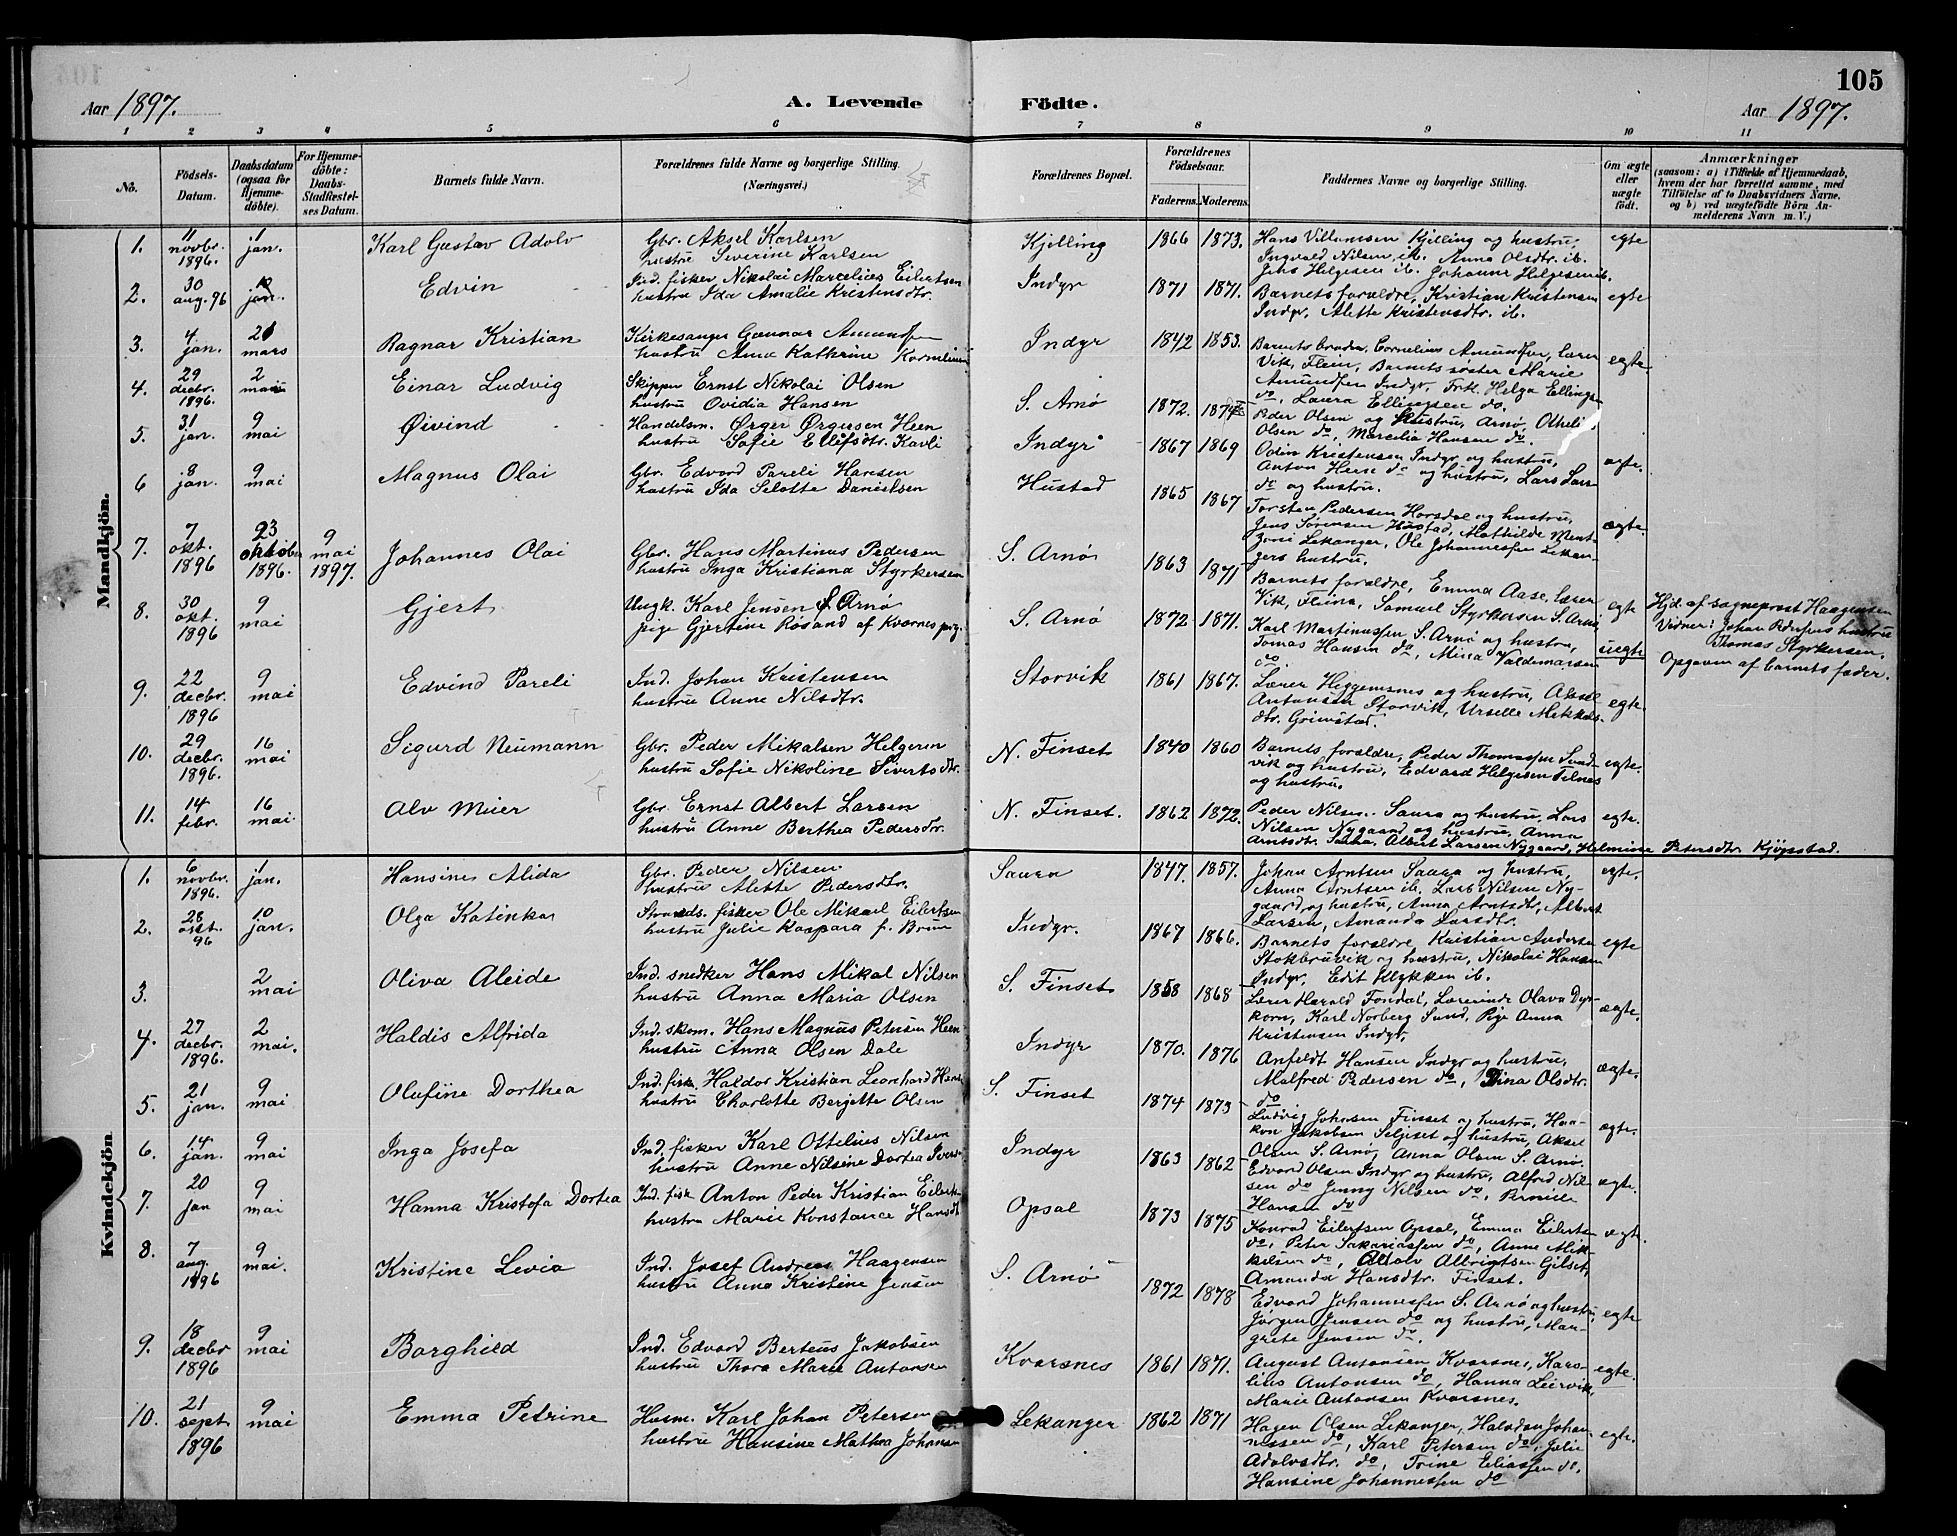 105
Aar 1897.
A. Levende Födte.
Aar 1897.
1 2 3 4 5 6 7 8 9 10 11
No.
Födsels-Datum.
Daabsdatum (ogsaa for Hjemme-döbte).
For Hjemme-döbte: Daabs-Stadfæstel-ses Datum.
Barnets fulde Navn.
Forældrenes fulde Navne og borgerlige Stilling.
(Næringsvei.)
Forældrenes Bopæl.
Forældrenes Födselsaar.
Faderens. Moderens.
Faddernes Navne og borgerlige Stilling.
Om ægte eller uægte födt.
Anmærkninger
(saasom: a) i Tilfælde af Hjemmedaab,
hvem der har forrettet samme, med
Tilföielse af to Daabsvidners Navne.
og b) ved uægtefödte Börn An-
melderens Navn m. V.)
Mandkjön.
1. 11 novbr. 1896. 1 jan. Karl Gustav Adolv
Gbr. Aksel Karlsen
hustru Severine Karlsen
Kjelling 1866 1873.
Hans Villumsen Kjelling og hustru,
Ingvald Nilsen, ib. Anna Olsdtr. ib.
Jens Helgesen ib. Johanne Helgesen ib.
egte
2. 30 aug. 96 jan. Edvin
Ind. fisker Nikolai Marcelius Eilertsen
hustru Ida Amalie Kristensdtr.
Indyr 1871 1871.
Barnets forældre, Kristian Kristensen
Indyr, Alette Kristensdtr. ib.
egte
3. 4 jan. mars Ragnar Kristian
Kirkesanger Gunnar Amundsen
hustru Anna Kathrine
Indyr 1842 1853.
Barnets broder, Cornelius Amundsen, lærer
Vik, Flein, Barnets søster Marie
Amundsen Indyr, Frk. Helga Ellingsen
do, Laura Ellingsen do.
egte
4. 29 decbr. 1896. 2 Einar Ludvig
Skipper Ernst Nikolai Olsen
hustru Ovidia Hansen
S. Arnø 1872.
Peder Olsen og hustru, Arnø,
Olsen do, Marcelia Hansen do.
5. 31 jan. 9 mai Øivind
Handelsm. Ørger Ørgersen Heen
hustru Sofie Kavli
Indyr 1867 1869
Odin Kristensen Indyr og hustru,
Anton Heen do og hustru, Lars
do og hustru.
ægte.
6 8 jan. 9 mai Magnus Olai
Gbr. Edvard Pareli Hansen
hustru Ida Selotte Danielsen
Hustad 1865 1867
Torsten Pedersen Horsdal og hustru,
Jens Sørensen Hustad, Mathilde Ment-
zoni Lekanger, Ole Johannessen Lekan-
gers hustru.
ægte.
7. 7 okt. 1896 23 oktober 1896. 9 mai 1897. Johannes Olai
Gbr. Hans Martinus Pedersen
hustru Inga Kristiana Styrkersen
S. Arnø 1863 1871
Barnets forældre, Emma Aase, lærer
Vik, Fleina, Samuel Styrkersen S. Arnø
egte
Hjd. af sogneprest Haagensen
Vidner: Johan hustru
Thomas Styrkersen.
8. 30 okt. 1896 9 mai Gjert
Ungk. Karl Jensen S. Arnø
pige Gjertine Røsand af Kvernes pgj.
S. Arnø 1872 1871.
Karl Martinussen S. Arnø og hustru,
Tomas Hansen do, Mina Valdemarsen
do.
uegte
Opgaven af barnets fader.
9. 22 decbr. 1896 9 mai Edvind Pareli
Ind. Johan Kristensen
hustru Anne Nilsdtr.
Storvik 1861 1867.
Lærer Heggemsnes og hustru, Aksel
Antonsen Storvik, Urselle Mikkels-
dtr. Grimstad.
egte
10. 29 decbr. 1896. 16 mai Sigurd Neumann
Gbr. Peder Mikalsen Helgesen
hustru Sofie Nikoline Sivertsdtr.
N. Finset 1840 1860
Barnets forældre, Peder Thomassen Sund-
vik og hustru, Edvard Helgesen Telnes
og hustru.
egte.
11. 14 febr. 16 mai Alv Meier
Gbr. Ernst Albert Larsen
hustru Anne Berthea Pedersdtr.
N. Finset. 1862 1872.
Peder Nilsen Saura og hustru, Lars
Nilsen Nygaard og hustru, Anna
Arntsdtr. Saura, Albert Larsen Nygaard, Helmine Petersdtr. Kjøpstad.
egte.
Kvindekjön.
1. 6 novbr. 1896. 1 jan. Hansine Alida
Gbr. Peder Nilsen
hustru Alette Pedersdtr.
Saura 1847. 1857.
Johan Arntsen Saura og hustru,
Anna Arntsen ib. Lars Nilsen Ny-
gaard og hustru, Anna Arntsdtr, Albert
Larsen, Amanda Larsdtr.
egte.
2. 26 okt. 96 10 jan. Olga Katinka
Strands. fisker Ole Mikael Eilertsen
hustru Julie Kaspara f. Brun
Indyr. 1867 1866.
Barnets forældre, Kristian Andersen
Stokbruvik og hustru, Nikolai Hansen
Indyr, Edit ib.
egte
3. 2 mai Oliva Aleide
Ind. snedker Hans Mikal Nilsen
hustru Anna Maria Olsen
S. Finset 1858 1868
Lærer Harald Fondal, Lærerinde Olava Dyr-
korn, Karl Norberg Sund, Pige Anna
Kristensen Indyr,
ægte.
4. 27 decbr. 1896. 2 mai. Haldis Alfrida
Ind. skom. Hans Magnus Petersen Heen
hustru Anna Olsen Dale
Indyr 1870. 1876
Anfeldt Hansen Indyr og hustru,
Malfred Pedersen do, Dina Olsdtr.
do
ægte.
5. 21 jan. 9 mai Olufine Dorthea
Ind. fisk. Haldor Kristian Leonhard
hustru Charlotte Bergette Olsen
S. Finset 1874 1873
Ludvig Johansen Finset og hustru, Haa-
kon Jakobsen Selsset og hustru, Aksel
Olsen S. Arnø, Anna Olsen S. Arnø.
ægte.
6. 14 jan. 9 mai Inga Josefa
Ind. fisker Karl Ottelius Nilsen
hustru Anne Nilsine Dortea
Indyr 1863 1862
Edvard Olsen Indyr og hustru, Alfred Nil-
sen do Jenny Nilsen do,
Hansen do
ægte.
7. 20 jan 9 mai Hanna Kristofa Dortea
Ind. fisk Anton Peder Kristian
hustru Marie Konstance
Opsal 1873 1875
Konrad Eilertsen Opsal, Emma Eilertsen
do, Peter Sakariassen do, Anne Mik-
kelsen do, Adolv Albrigtsen Gilset,
Amanda Hansdtr. Finset.
ægte.
8. 7 aug. 1896 9 mai. Kristine Levia
Ind. Josef Andreas Haagensen
hustru Anna Kristine Jensen
S. Arnø 1872 1878
Edvard Johannessen S. Arnø og hustru,
Jørgen Jensen do og hustru, Mar-
grete Jensen do.
egte
9. 18 decbr 1896 9 mai Borghild
Ind. Edvard Berteus Jakobsen
hustru Thora Marie Antonsen
Kvarsnes 1861 1871.
August Antonsen Kvarsnes, Kars-
lius Antonsen do, Hanna Leirvik,
Marie Antonsen Kvarsnes.
egte.
10. 21 sept 1896 9 mai Emma Petrine
Husm. Karl Johan Petersen
hustru Hansine Mathea Johansen
Lekanger 1862 1871
Hagen Olsen Lekanger, Halvdan Johan-
nessen do, Karl Petersen do, Julie
Adolvsdtr. do, Trine Eliassen do,
Hansine Johannessen do
egte.